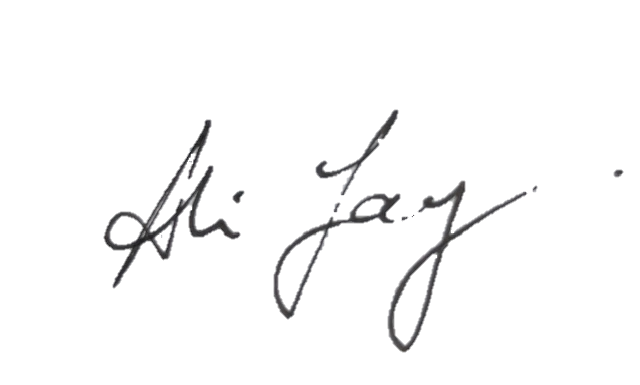 Ali Jay